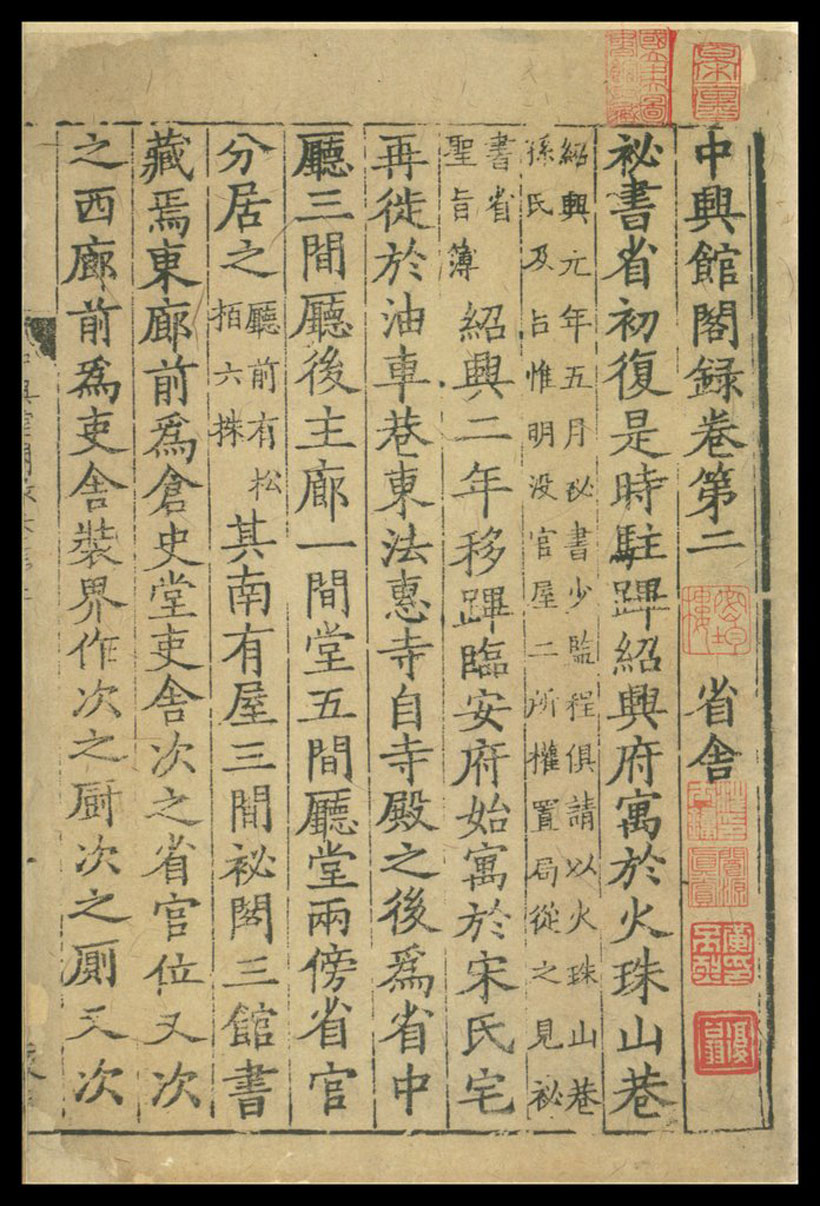 中興館閣録卷第二　省舍
祕書省初復是時駐蹕紹興府寓於火珠山巷
紹興元年五月祕書少監程俱請以火珠山巷
孫氏及呂惟明没官屋二所權置局從之見祕
書省
聖旨簿
紹興二年移蹕臨安府始寓於宋氏宅
再徙於油車巷東法惠寺自寺殿之後爲省中
廳三間廳後主廊一間堂五間廳堂兩傍省官
分居之
廳前有松
栢六株
其南有屋三間祕閣三館書
藏焉東廊前爲倉史堂吏舍次之省官位又次
之西廊前爲吏舍裝界作次之厨次之厠又次